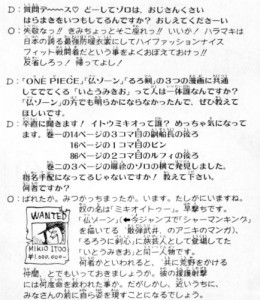 D：質問でーース♡ どーしてゾロは、おじさんくさい
はらまきをいつもしてるんですか？ おしえてくださーい
O：失敬なッ!! きみちょっとそこ座れっ!! いいか！ ハラマキは
日本の誇る最強防寒衣裳にしてハイファッションナイス
フィット戦闘者だという事をよくおぼえておけっ!!
反省しろっ！帰ってよし!!
D：「ONE PIECE」「仏ゾーン」「るろ剣」の3つの漫画に共通
してでてくる「いとうみきお」人は一体誰なんですか？
「仏ゾーン」の方でも明らかにならなかったんで、ぜひ教えて
ほしいです。
D：卒直に聞きます！ イトウミキオって誰？ めっちゃ気になって
ます。巻一の14ページの3コマ目の副船長のうしろ
16ページの1コマ目のビン
86ページの2コマ目のルフィの後ろ
巻二の3ページの最後のゾロの横で発見しました。
指名手配になってるじゃないですか！ 教えて下さい。
何者ですか？
O：ばれたか。みつかっちまったか。います。たしかにいますね。
奴の名は「ミキオイトゥー」。
「仏ゾーン」（今ジャンプで「シャーマンキング」
を描いてる
「るろうに剣心」に旅芸人として登場してた
「いとうみきお」と同一人物です。
何者かといわれると、共に荒野をかける
仲間、とでもいっておきましょうか。彼の援護射撃
には何度命を救われた事か。だがしかし、近いうちに、
みなさんの前に自ら姿を現すことになるでしょう。
WANTED
MIKIO ITOO